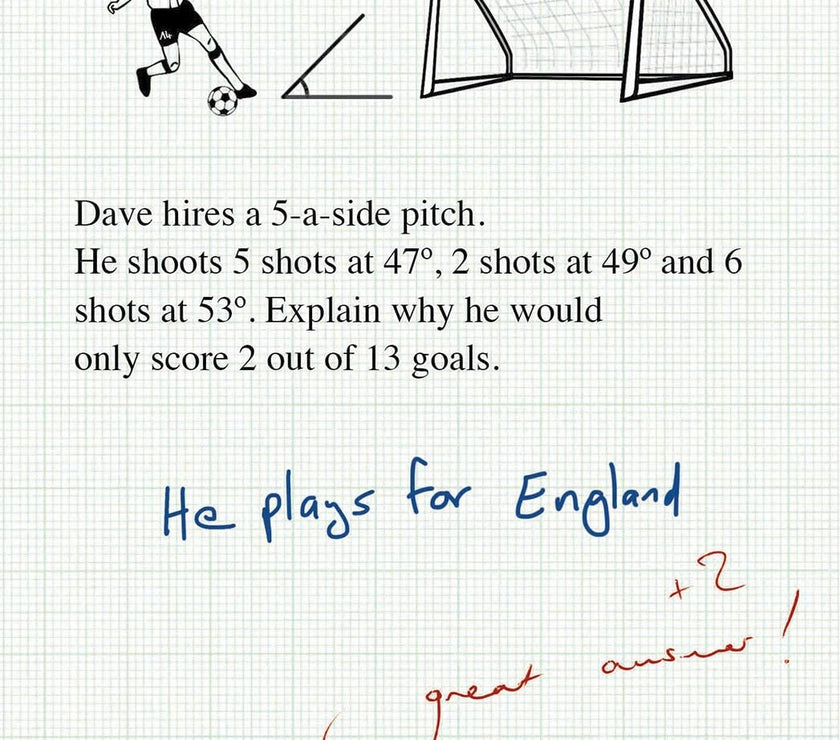 14
Dave hires a 5-a-side pitch.
He shoots 5 shots at 47º, 2 shots at 49º and 6
shots at 53º. Explain why he would
only score 2 out of 13 goals.
He plays for England
+2
great answer!